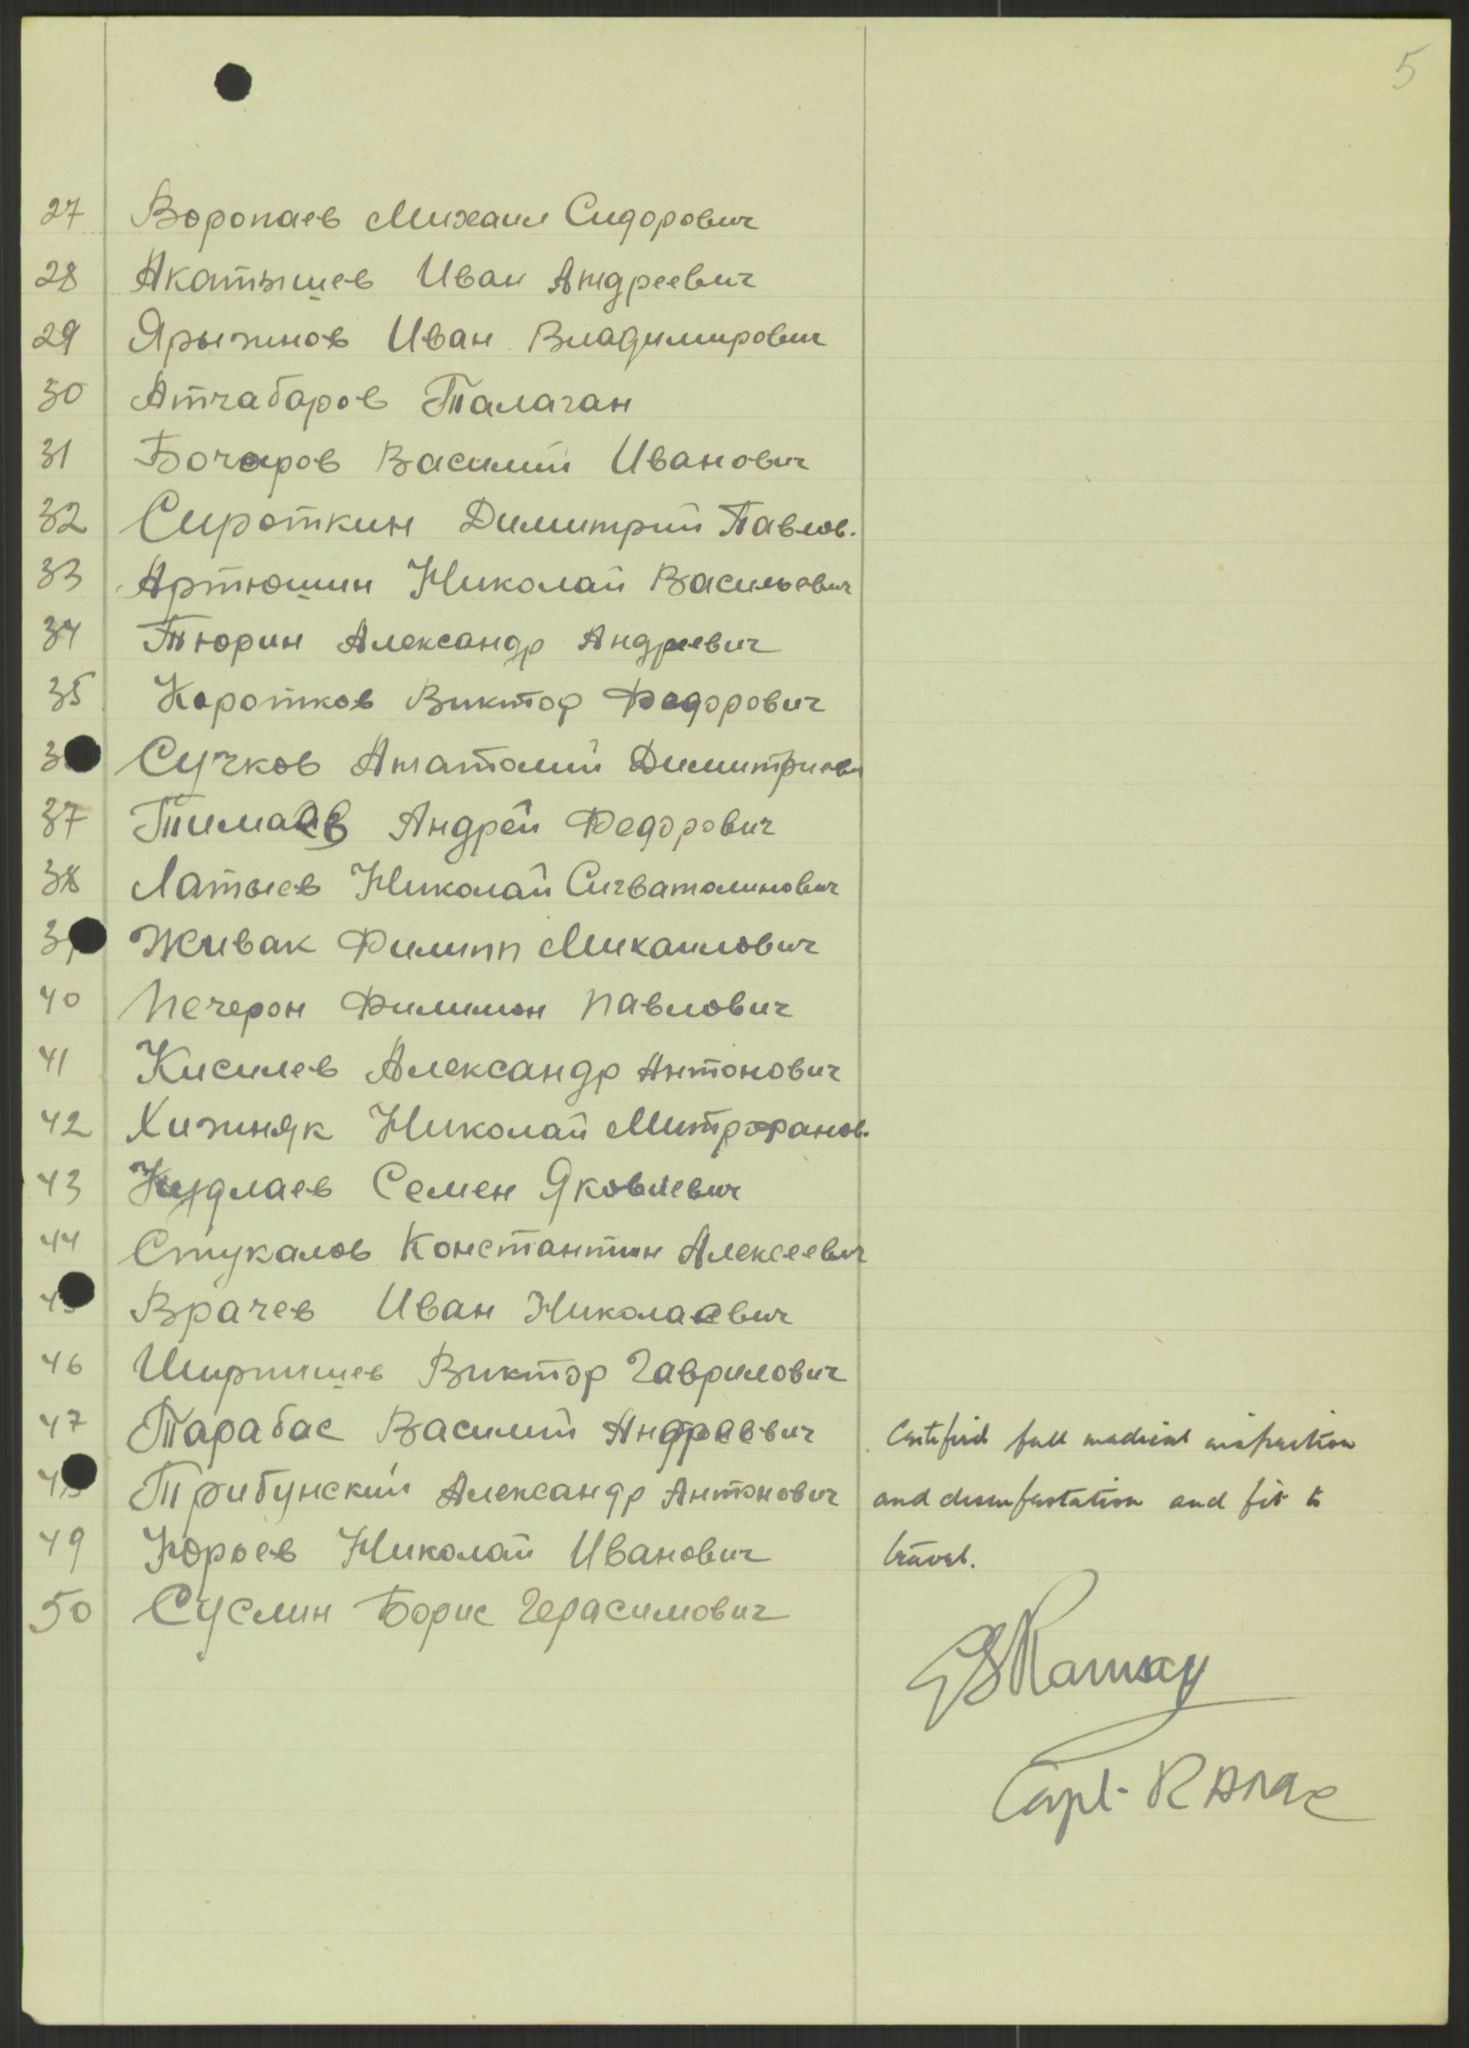 5
27 Воропаев Михаил Сидорович
28 Акатышев Иван Андреевич
29 Ярыжнов Иван Владимирович
30 Атчабаров Талаган
31 Бочаров Василий Иванович
32 Сироткин Димитрий Павлов.
33 Артюшин Николай Васильевич
34 Тюрин Александр Андреевич
35 Коротков Виктор Федорович
Сучков Анатолий Димитриеви
37 Тимаев Андрей Федорович
38 Латыев Николай Сигватолинович
Живак Филипп Михаилович
40 Печерон Филимон Павлович
41 Кисилев Александр Антонович
42 Хижняк Николай Митрофанов.
43 Кудлаев Семен Яковлевич
44 Стукалов Константин Алексеевич
Врачев Иван Николаевич
46 Ширтишев Виктор Гаврилович
47 Тарабас Василий Андреевич
Трибунский Александр Антонович
49 Юрьев Николай Иванович
50 Суслин Борис Герасимович
Certified full medical inspection
and disinfestation and fit to
travel.
GS Ramsay
Capt. RAMC